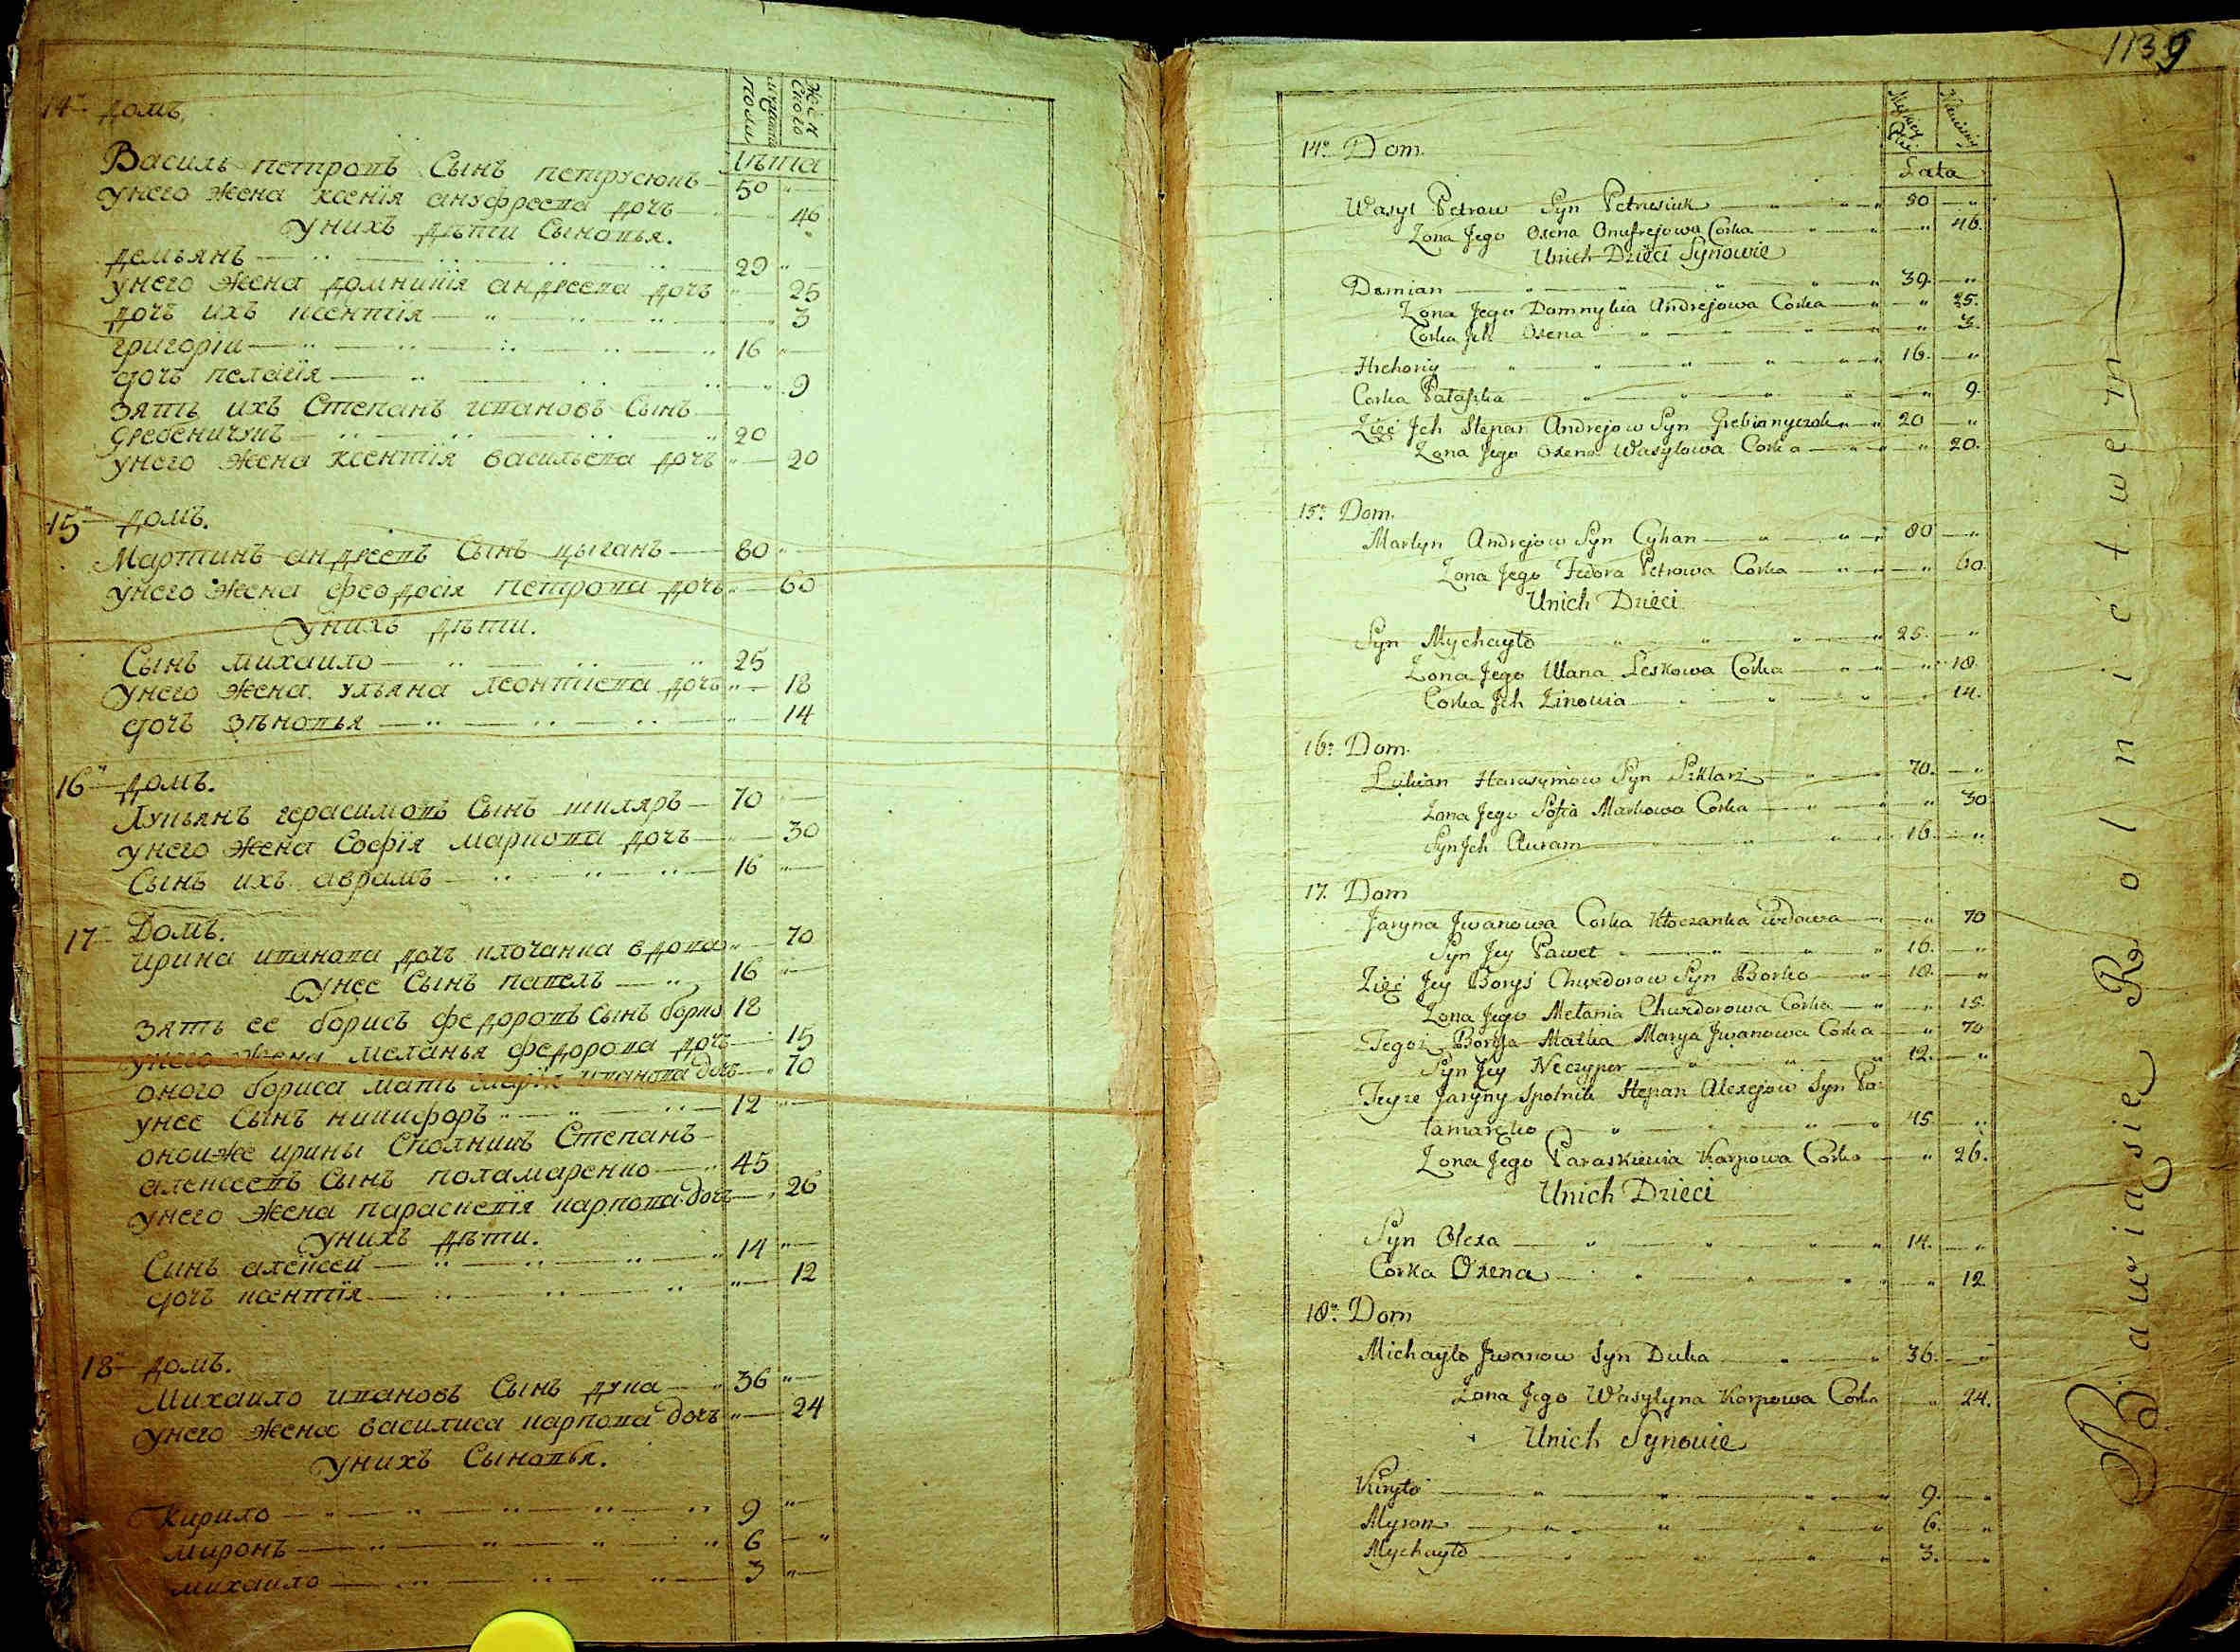 мужеска пола
женского
лѣта
14 домъ.
Василь петровъ Сынъ петрусюкъ — 50 "
унего жена ксенїя ануфреева дочъ — 46
унихъ дѣти Сыновья.
демьянъ — 29 "
унего жена домникїя андреева дочъ " 25
дочъ ихъ ксентїя — " 3
григорїи — 16 "
дочъ пелагїя — " 9
зять ихъ Степанъ ивановъ Сынъ
гребеничукъ — 20
унего жена ксентїя васильева дочъ " 20
15 домъ.
Мартинъ андреевъ Сынъ цыганъ — 80 "
унего жена феодосїя петрова дочъ " 60
унихъ дѣти.
Сынъ михаило — 25
унего жена ульяна леонтїева дочъ " 18
дочъ зѣновья — " 14
16 домъ.
Лукьянъ герасимовъ Сынъ шкляръ — 70 "
унего жена Софїя маркова дочъ " 30
Сынъ ихъ аврамъ — 16 "
17 Домъ.
ирина иванова дочъ клочанка вдова " 70
унее Сынъ павелъ — 16 "
зять ее борисъ федоровъ Сынъ борко 18
унего жена меланья федорова дочъ — 15
оного бориса мать марїя иванова дочъ — 70
унее Сынъ никифоръ — 12 "
оноиже ирины Сполникъ Степанъ
алексеевъ Сынъ поламаренко — 45
унего жена параскевїя карпова дочъ — 26
унихъ дѣти.
Сынъ алексей — 14 "
дочъ ксентїя — " 12
18 домъ.
Михаило ивановъ Сынъ дука — 36 "
унего жена василиса карпова дочъ " 24
унихъ Сыновья.
Кирило — 9 "
миронъ — 6 "
михаило — 3 "
1139
Lata
14 Dom.
Wasyl Petrow Syn Petrusiuk — 50 "
Zona Jego Oxena Onufrejowa Corka — " 46.
Unich Dzieci Synowie
Demian — 39. "
Zona Jego Domnykia Andrejowa Corka — " 25.
Corka Jch Oxena — " 3.
Hrehoriy — 16. "
Corka Pałaszka — " 9.
Zięć Jch Stepan Andrejow Syn Grebianyczok — 20 "
Zona Jego Oxena Wasylowa Corka — " 20.
15 Dom.
Martyn Andrejow Syn Cyhan — 80 "
Zona Jego Fedora Petrowa Corka — " 60.
Unich Dzieci
Syn Mychayło — 25. "
Zona Jego Ulana Leskowa Corka — " 18.
Corka Jch Zinowia — " 14.
16 Dom.
Łukian Harasymow Syn Szklarz — 70. "
Zona Jego Sofia Markowa Corka — " 30
Syn Jch Auram — 16. "
17. Dom
Jaryna Jwanowa Corka Kłoczanka Wdowa — " 70
Syn Jey Paweł — 16. "
Zięć Jey Borys Chwedorow Syn Borko — 18. "
Zona Jego Melania Chwedorowa Corka — " 15.
Tegoż Borysa Matka Marya Jwanowa Corka — " 70
Syn Jey Neczypor — 12. "
Teyze Jaryny Spolnik Stepan Alexejow Syn Pa-
łamarczko — 45. "
Zona Jego Paraskiewia Karpowa Corka — " 26.
Unich Dzieci
Syn Olexa — 14. "
Corka Oxena — " 12
18 Dom
Michayło Jwanow Syn Duka — 36. "
Zona Jego Wasylyna Karpowa Corka — " 24.
Unich Synowie
Kiryło — 9. "
Myron — 6. "
Mychayło — 3. "
Bawiąsie Rolnictwem